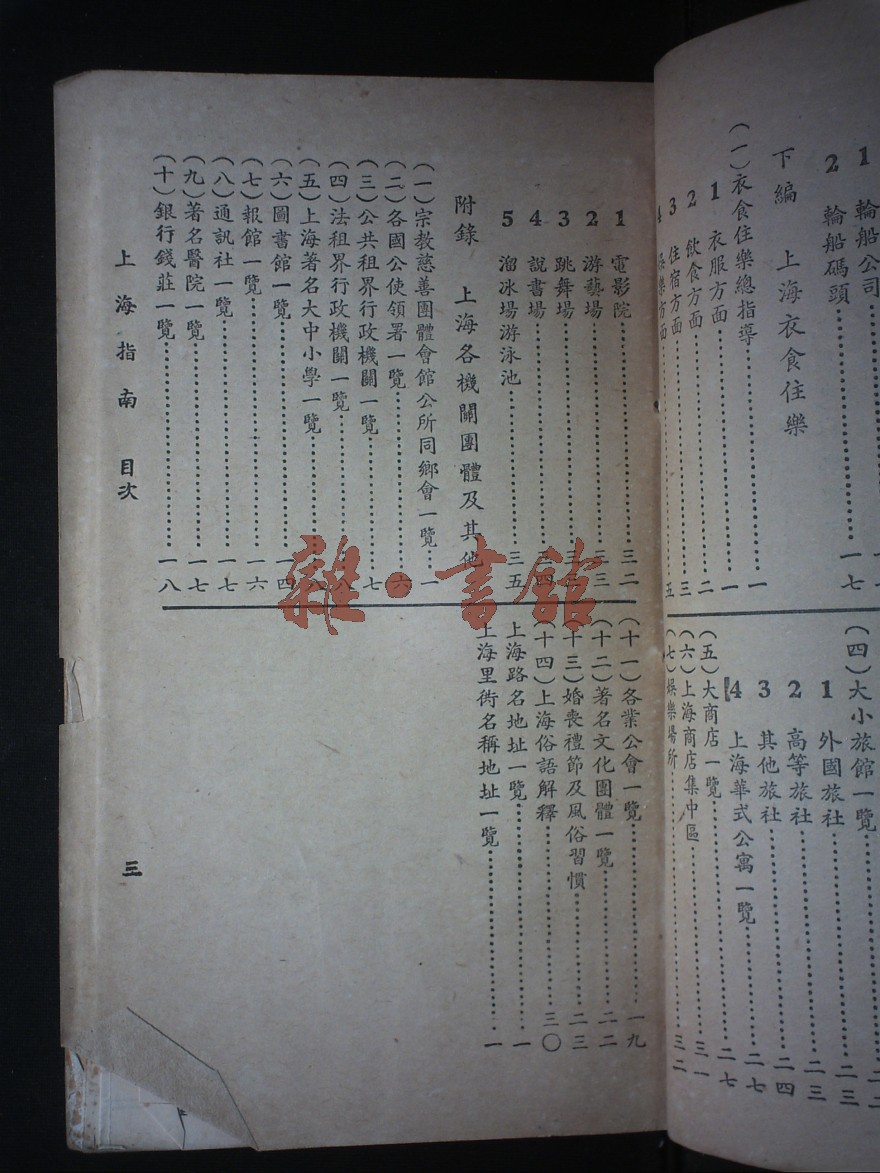 1 輪船公司………一七
2 輪船碼頭………一七
下編 上海衣食住樂
(一)衣食住樂總指導………一
1 衣服方面………一
2 飲食方面………二
3 住宿方面………三
4 娛樂方面………五
(四)大小旅館一覽
1 外國旅社………二三
2 高等旅社………二四
3 其他旅社………二七
4 上海華式公寓一覽………二七
(五)大商店一覽
(六)上海商店集中區………三一
(七)娛樂場所………三二
1 電影院………三二
2 游藝場………三三
3 跳舞場
4 說書場………三四
5 溜冰場游泳池………三五
附錄 上海各機關團體及其他
(一)宗教慈善團體會館公所同鄉會一覽………一
(二)各國公使領署一覽………六
(三)公共租界行政機關一覽………七
(四)法租界行政機關一覽………八
(五)上海著名大中小學一覽………八
(六)圖書館一覽………一四
(七)報館一覽………一六
(八)通訊社一覽………一七
(九)著名醫院一覽………一七
(十)銀行錢莊一覽………一八
(十一)各業公會一覽………一九
(十二)著名文化團體一覽………二二
(十三)婚喪禮節及風俗習慣………二三
(十四)上海俗語解釋………三〇
上海路名地址一覽………一
上海里衖名稱地址一覽………一
上海指南 目次
三
雜·書館